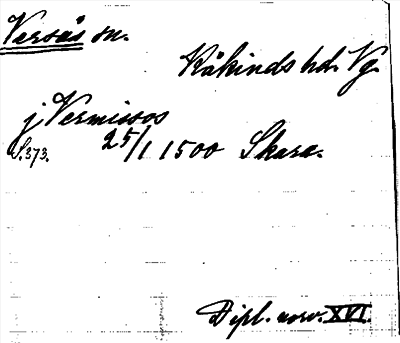 Versås sn.
Kåkinds hd. Vg.
j Vermissos
S. 373. 25/1 1500 Skara.
Dipl. norv. XVI.